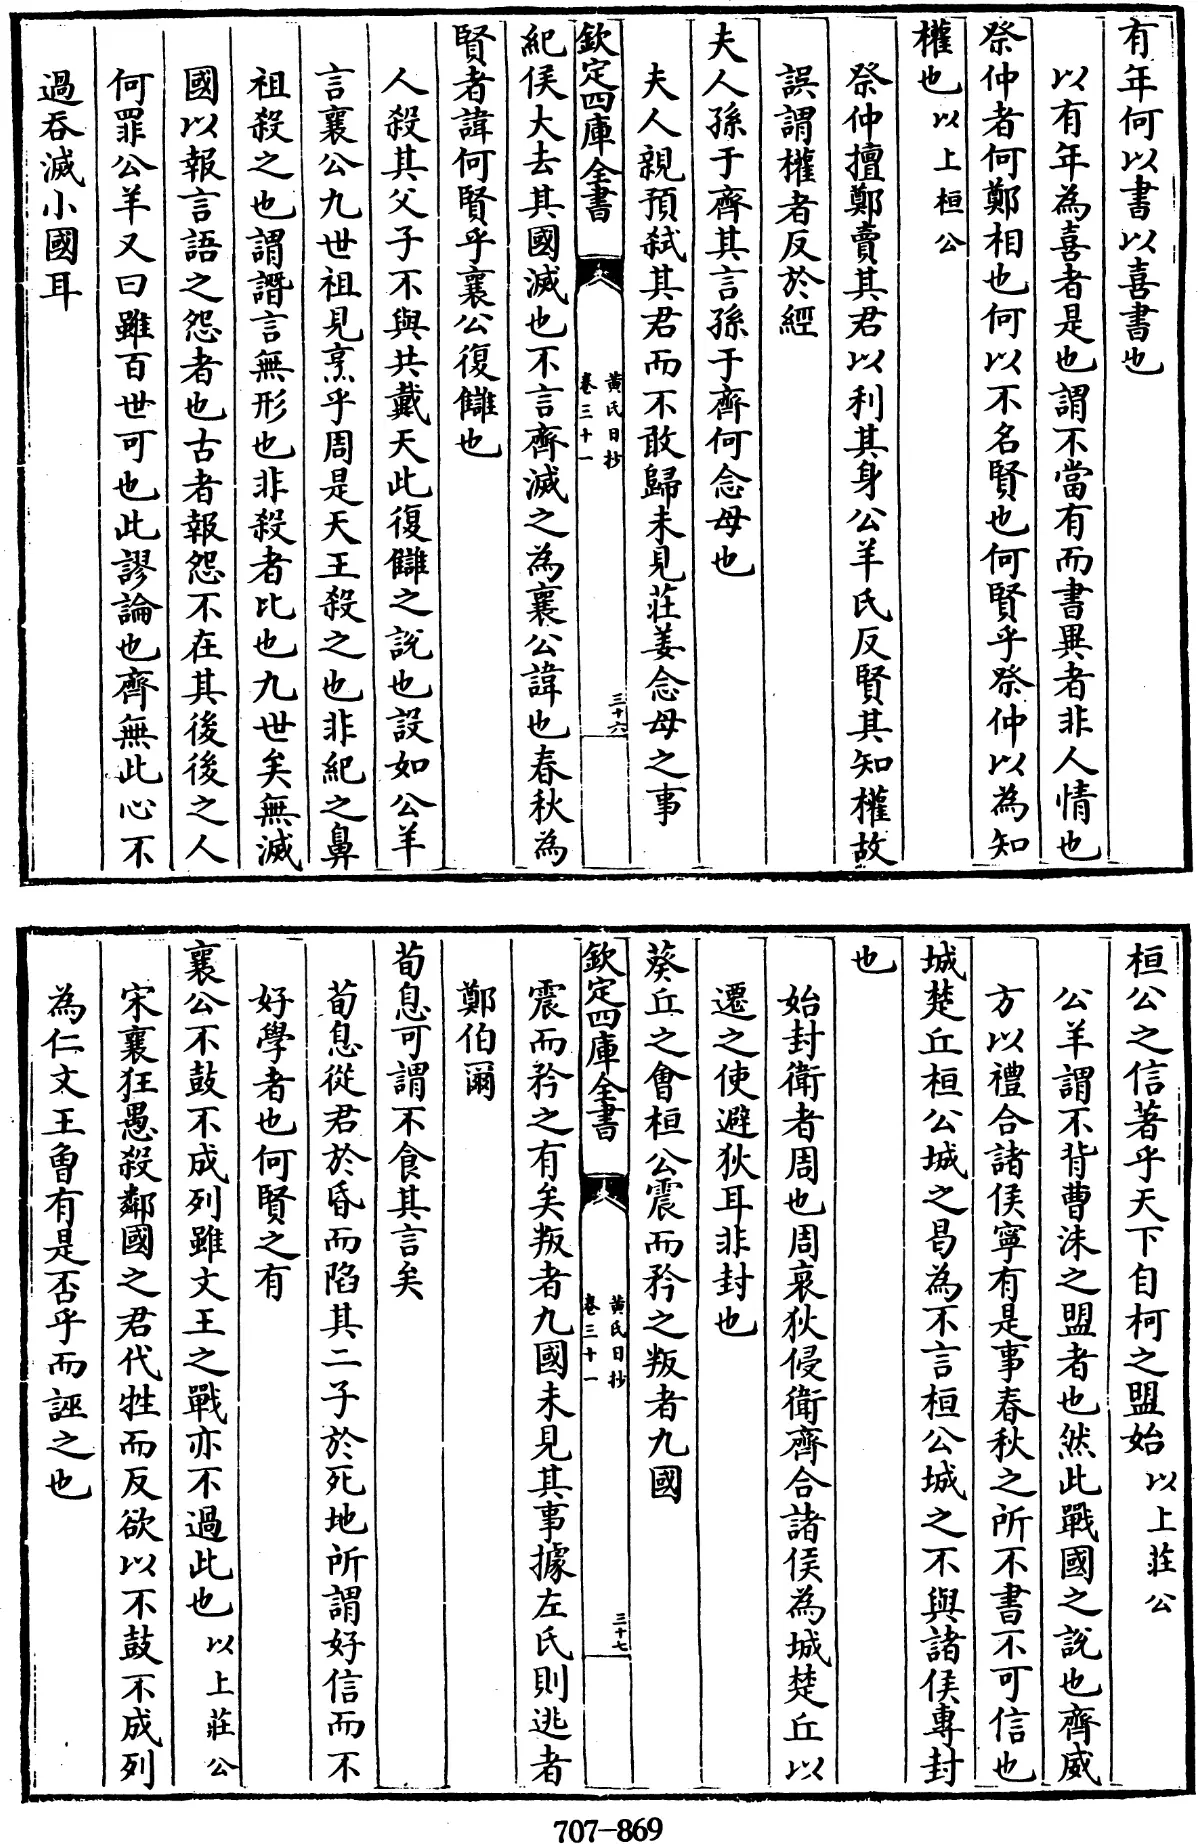 有年何以書以喜書也
以有年為喜者是也謂不當有而書異者非人情也
祭仲者何鄭相也何以不名賢也何賢乎祭仲以為知
權也以上桓公
祭仲擅鄭賣其君以利其身公羊氏反賢其知權故
誤謂權者反於經
夫人孫于齊其言孫于齊何念母也
夫人親預弑其君而不敢歸未見莊姜念母之事
欽定四庫全書
黃氏日抄
卷三十一
三十六
紀侯大去其國滅也不言齊滅之為襄公諱也春秋為
賢者諱何賢乎襄公復讎也
人殺其父子不與共戴天此復讎之說也設如公羊
言襄公九世祖見烹乎周是天王殺之也非紀之鼻
祖殺之也謂譖言無形也非殺者比也九世矣無滅
國以報言語之怨者也古者報怨不在其後後之人
何罪公羊又曰雖百世可也此謬論也齊無此心不
過吞滅小國耳
桓公之信著乎天下自柯之盟始以上莊公
公羊謂不背曹沫之盟者也然此戰國之說也齊威
方以禮合諸侯寧有是事春秋之所不書不可信也
城楚丘桓公城之曷為不言桓公城之不與諸侯專封
也
始封衛者周也周哀狄侵衛齊合諸侯為城楚丘以
遷之使避狄耳非封也
葵丘之會桓公震而矜之叛者九國
欽定四庫全書
黃氏日抄
卷三十一
三十七
震而矜之有矣叛者九國未見其事據左氏則逃者
鄭伯爾
荀息可謂不食其言矣
荀息從君於昏而陷其二子於死地所謂好信而不
好學者也何賢之有
襄公不鼓不成列雖文王之戰亦不過此也以上莊公
宋襄狂愚殺鄰國之君代牲而反欲以不鼓不成列
為仁文王曾有是否乎而誣之也
707-869